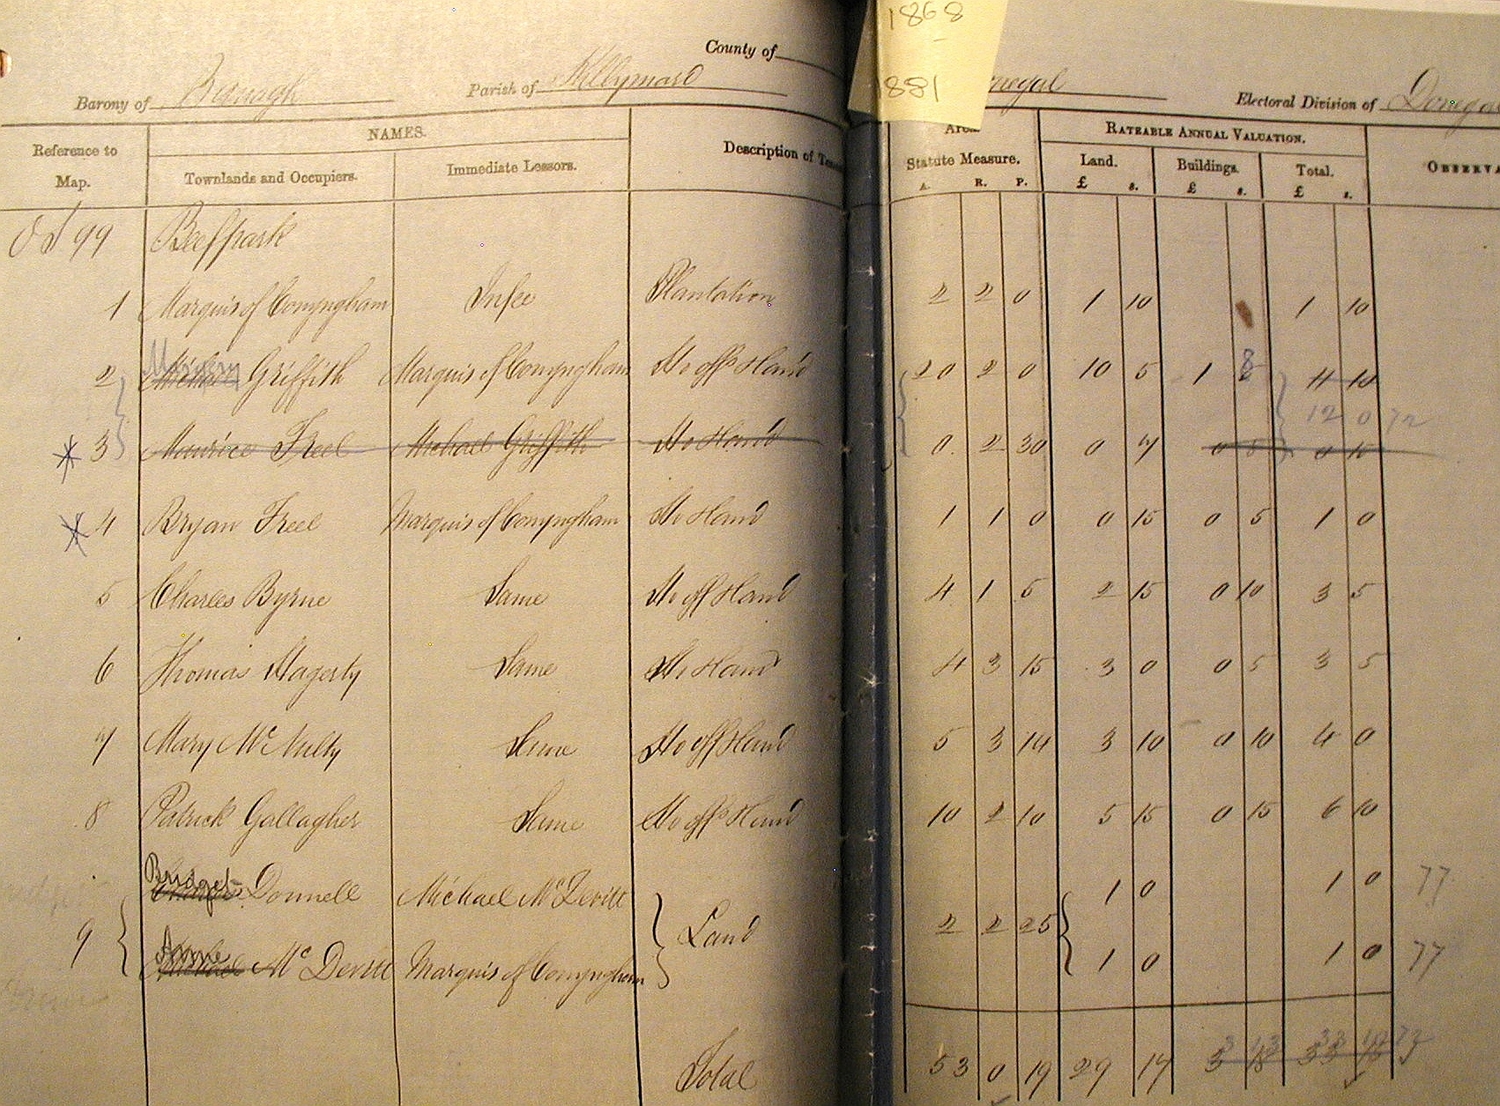 1868
1881
County of Donegal
Barony of Banagh Parish of Killymard Electoral Division of Donegal
NAMES. Area RATEABLE ANNUAL VALUATION.
Reference to Map. Townlands and Occupiers. Immediate Lessors. Description of Statute Measure. Land. Buildings. Total.
A. R. P. £ s. £ s. £ s.
99 Beefpark
1 Marquis of Conyngham In fee Plantation 2 2 0 1 10 1 10
2 Griffith Marquis of Conyngham Ho offs Land 20 2 0 10 5 1 11 10
12 0 72
3 Maurice Freel Michael Griffith Ho Land 0 2 30 0 7 0 0
4 Bryan Freel Marquis of Conyngham Ho Land 1 1 0 0 15 0 5 1 0
5 Charles Byrne Same Ho off Land 4 1 5 2 15 0 10 3 5
6 Thomas Hagerty Same Ho Land 4 3 15 3 0 0 5 3 5
7 Mary McNulty Same Ho off Land 5 3 14 3 10 0 10 4 0
8 Patrick Gallagher Same Ho offs Land 10 2 10 5 15 0 15 6 10
Bridget Donnell Michael McDevitt 1 0 1 0 77
9 Land 2 2 25
Anne Michael McDevitt Marquis of Conyngham 1 0 1 0 77
Total 53 0 19 29 17